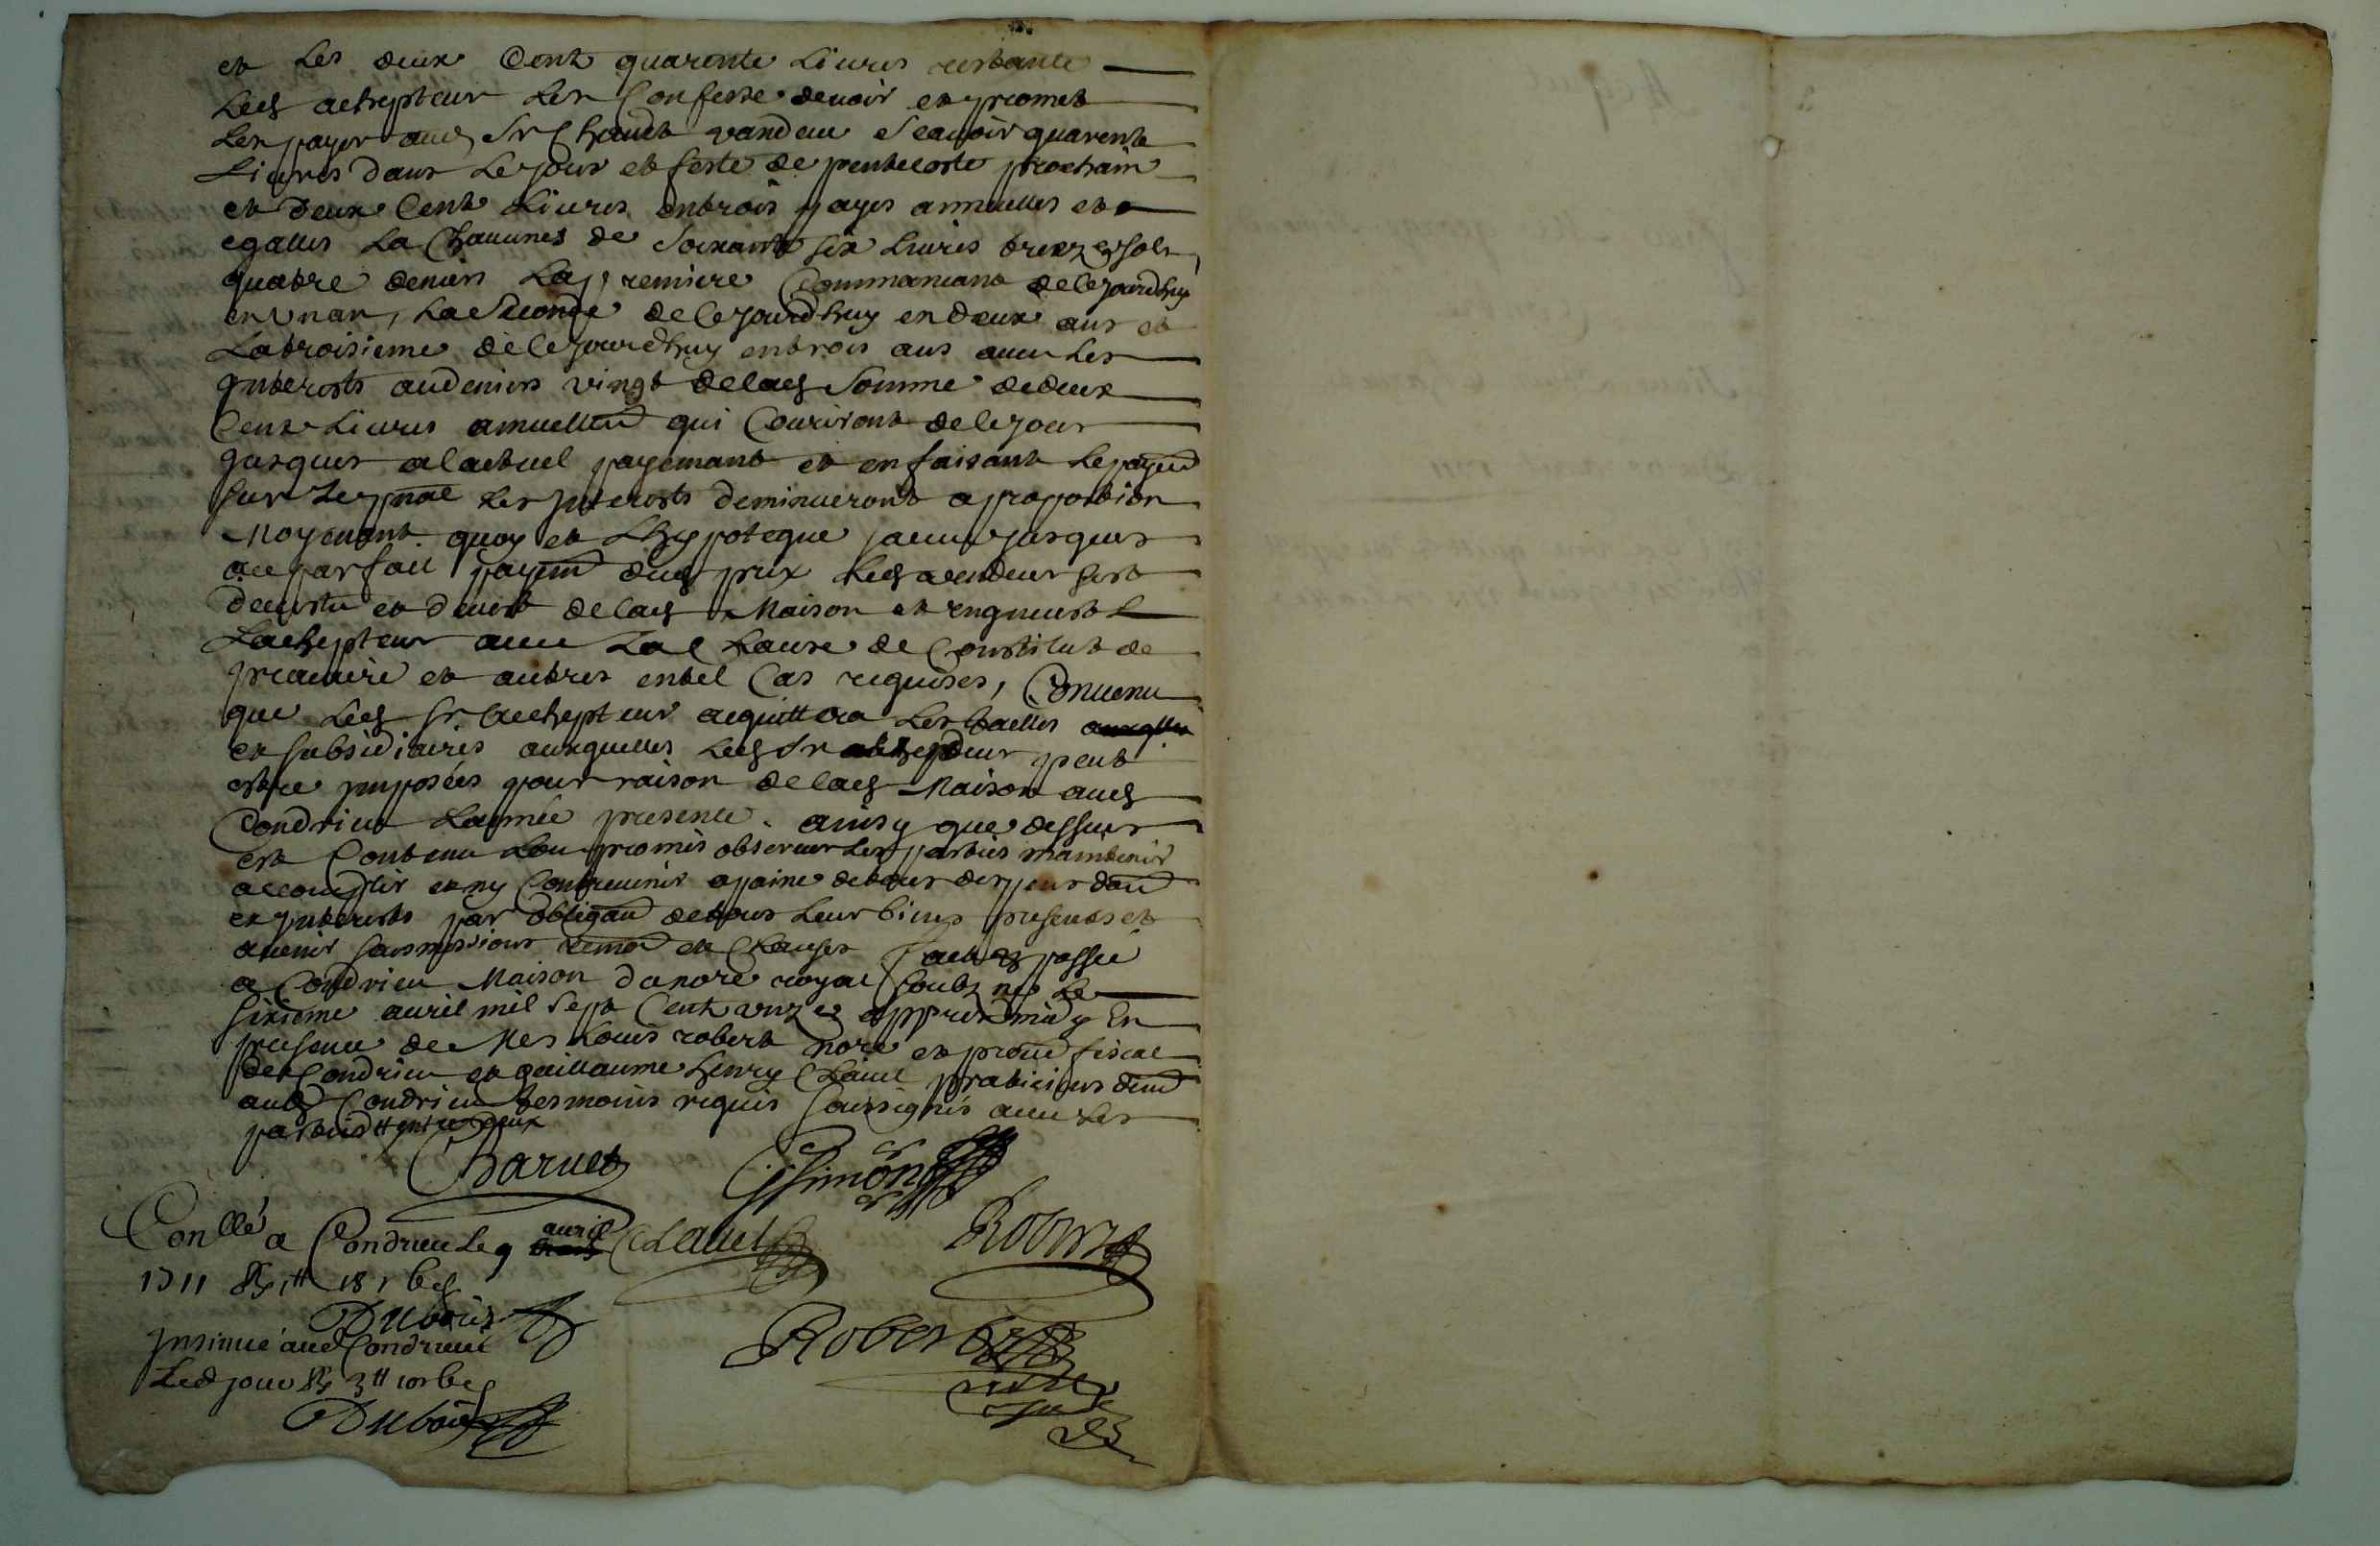 et Les deux Cent quarente Liures restante
Led achepteur Les Confesse deuoir et promet
Les payer aud Sr Charuet vandeur Scauoir quarente
Liures dans Le jour et feste de pentecoste prochain
et deux Cent Liures entrois payes annuelles et
egalles La Chacunes de Soixante six liures treize sols
quatre deniers La premiere Commancant de Cejourdhuy
en Un an, La Seconde de Cejourdhuy en deux ans et
La troisieme de Cejourdhuy en trois ans auec Les
jnterests au deniers vingt de lad Somme de deux
Cent Liures annuellemt qui Couriront de Ce jour
jusques a lactuel payemant et en faisant Le payemt
sur Le pnal Les jnterests deminueront a proportion
Moyenant quoy et Lhypoteque jusques
au parfait payemt dud prix Led vendeur sest
deuestu et deuest de lad Maison et
Lachepteur auec La Clause de Constitut de
precaire et autres en tel Cas requises, Conuenu
que Led Sr achepteur acquittera Les tailles
et subsidiaires auxquelles Led Sr achepteur peut
estre jmposées pour raison de lad Maison aud
Condrieu Lannée presente. ainsy que dessus
est Contenu Lon promis obseruer Les parties maintenir
accomplir et ny Contreuenir a paine de tous despens dom
et jnterests par obligaon de tous Leur biens presents et
auenir sousmissions renon et Clauses fait et passé
a Condrieu Maison du nore royal soubz né Le
sixieme auril mil sept Cent unze appres midy En
presence de Mes Louis robert nore et procur fiscal
de Condrieu et guillaume henry Clauel praticiens demt
aud Condrieu tesmoins requis soussignés auec Les
parties
Charuet
Simon
Conllé a Condrieu Le 9 auril
Clauel
Robert
1711 18 s
Dubois
Jnsinué aud Condrieu
Robert
Led jour
Dubois